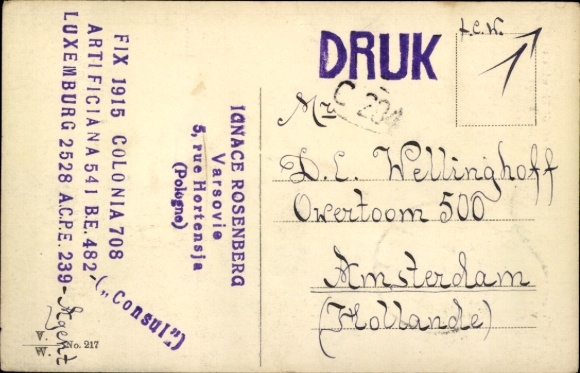 FIX 1915 COLONIA 708
ARTIFICIANA 541 B.E. 482 - („Consul”)
LUXEMBURG 2528 A.C.P.E. 239 - Agent
IGNACE ROSENBERG
Varsovie
5, rue Hortensja
(Pologne)
V.
W. No. 217
DRUK
t.c.W.
C 204
Mr
D.L. Wellinghoff
Owertoom 500
Amsterdam
(Hollande)